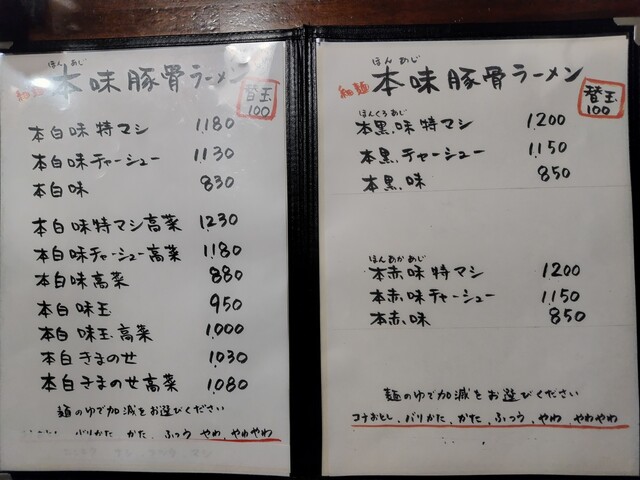 ほん あじ
本味豚骨ラーメン
替玉
100
本白味特マシ 1180
本白味チャーシュー 1130
本白味 830
本白味特マシ高菜 1230
本白味チャーシュー高菜 1180
本白味高菜 880
本白味玉 950
本白味玉高菜 1000
本白きまのせ 1030
本白きまのせ高菜 1080
麺のゆで加減をお選びください
バリかた かた、ふつう やわ、やわやわ
ほん あじ
細麺 本味豚骨ラーメン
替玉
100
ほんくろあじ
本黒味特マシ 1200
本黒味チャーシュー 1150
本黒味 850
ほんあかあじ
本赤味特マシ 1200
本赤味チャーシュー 1150
本赤味 850
麺のゆで加減をお選びください
コナおとし、バリかた、かた、ふつう、やわ、やわやわ